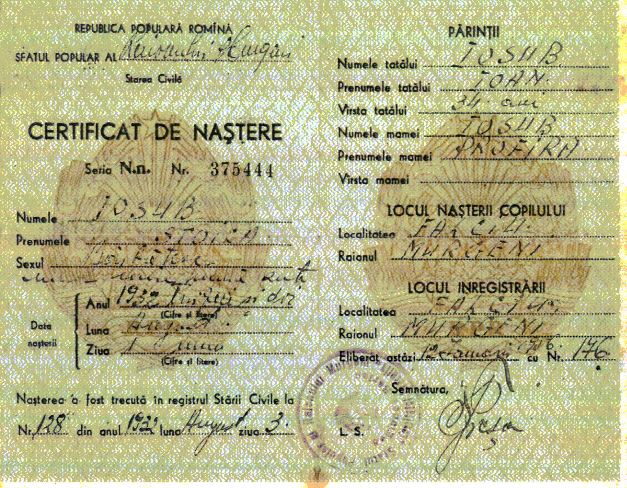 REPUBLICA POPULARĂ ROMÎNĂ
SFATUL POPULAR AL Raionului Murgeni
Starea Civilă
CERTIFICAT DE NAȘTERE
Seria N.n. Nr. 375444
Numele IOSUB
Prenumele STOICA
Sexul
Anul 1932
(Cifre și litere)
Data nașterii
Luna August
Ziua 1
(Cifre și litere)
Nașterea a fost trecută în registrul Stării Civile la
Nr. 128 din anul 1932 luna August ziua 3.
PĂRINȚII
Numele tatălui IOSUB
Prenumele tatălui IOAN
Vîrsta tatălui 34 ani
Numele mamei IOSUB
Prenumele mamei PROFIRA
Vîrsta mamei
LOCUL NAȘTERII COPILULUI
Localitatea FALCIU
Raionul MURGENI
LOCUL INREGISTRĂRII
Localitatea FALCIU
Raionul MURGENI
Eliberat astăzi 12 cu Nr. 176
Semnătura,
L. S.